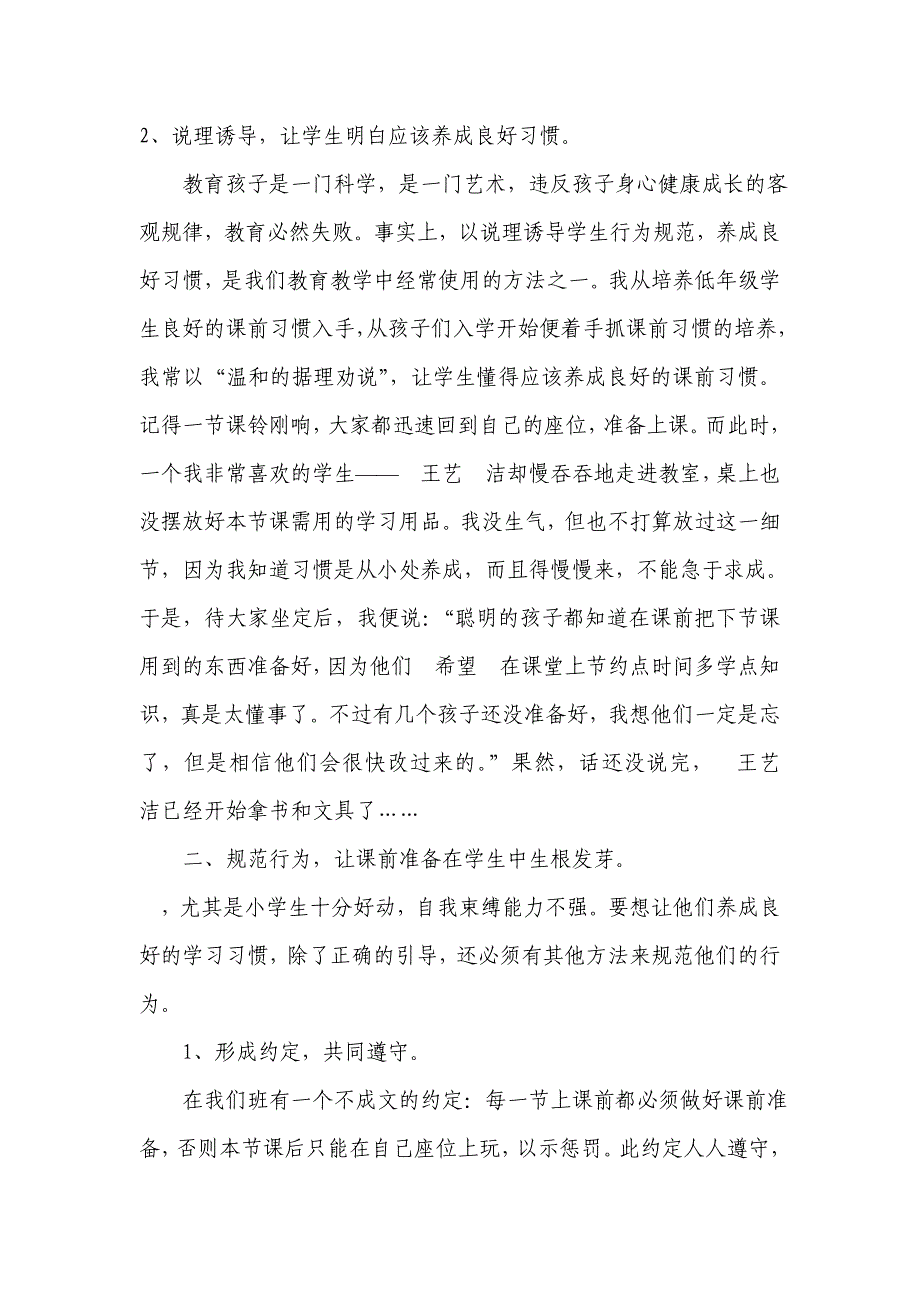 2、说理诱导，让学生明白应该养成良好习惯。
教育孩子是一门科学，是一门艺术，违反孩子身心健康成长的客
观规律，教育必然失败。事实上，以说理诱导学生行为规范，养成良
好习惯，是我们教育教学中经常使用的方法之一。我从培养低年级学
生良好的课前习惯入手，从孩子们入学开始便着手抓课前习惯的培养，
我常以“温和的据理劝说”，让学生懂得应该养成良好的课前习惯。
记得一节课铃刚响，大家都迅速回到自己的座位，准备上课。而此时，
一个我非常喜欢的学生——　王艺　洁却慢吞吞地走进教室，桌上也
没摆放好本节课需用的学习用品。我没生气，但也不打算放过这一细
节，因为我知道习惯是从小处养成，而且得慢慢来，不能急于求成。
于是，待大家坐定后，我便说：“聪明的孩子都知道在课前把下节课
用到的东西准备好，因为他们　希望　在课堂上节约点时间多学点知
识，真是太懂事了。不过有几个孩子还没准备好，我想他们一定是忘
了，但是相信他们会很快改过来的。”果然，话还没说完，　王艺
洁已经开始拿书和文具了……
二、规范行为，让课前准备在学生中生根发芽。
，尤其是小学生十分好动，自我束缚能力不强。要想让他们养成良
好的学习习惯，除了正确的引导，还必须有其他方法来规范他们的行
为。
1、形成约定，共同遵守。
在我们班有一个不成文的约定：每一节上课前都必须做好课前准
备，否则本节课后只能在自己座位上玩，以示惩罚。此约定人人遵守，